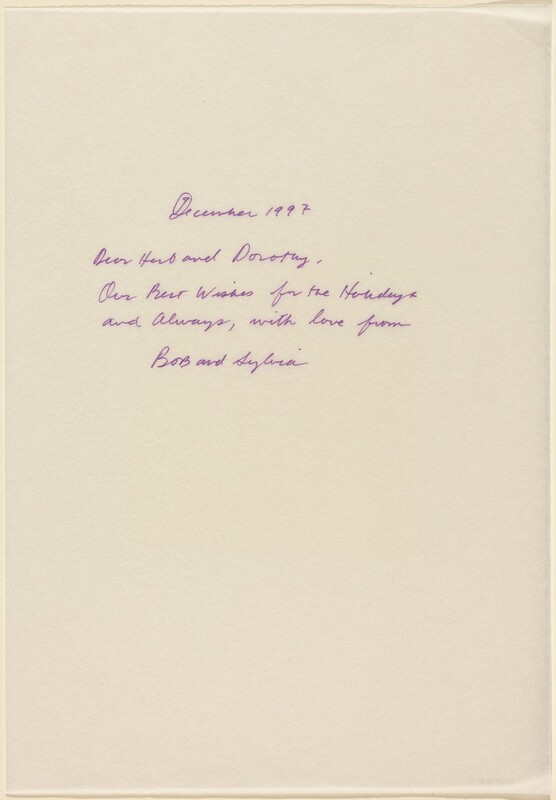 December 1997
Dear Herb and Dorothy,
Our Best Wishes for the Holidays
and Always, with love from
Bob and Sylvia